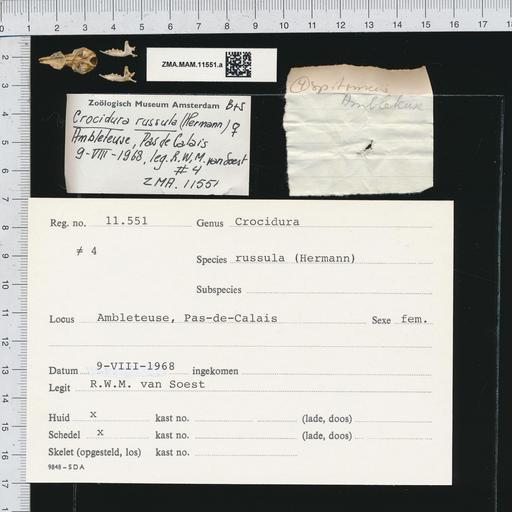 ZMA.MAM.11551.a
Zoölogisch Museum Amsterdam B+S
Crocidura russula (Hermann) ♀
Ambleteuse, Pas de Calais
9-VIII-1968, leg. R.W.M. van Soest
# 4
ZMA. 11551
Ambleteuse
Reg. no. 11.551 Genus Crocidura
≠ 4
Species russula (Hermann)
Subspecies
Locus Ambleteuse, Pas-de-Calais Sexe fem.
Datum 9-VIII-1968 ingekomen
Legit R.W.M. van Soest
Huid x kast no. (lade, doos)
Schedel x kast no. (lade, doos)
Skelet (opgesteld, los) kast no.
9848-SDA